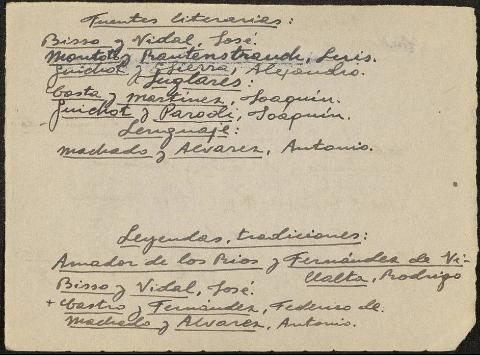 Fuentes literarias:
Bisso y Vidal, José.
Montoto y Rautenstrauch, Luis.
Guichot y Sierra, Alejandro.
Juglares:
Costa y Martínez, Joaquín.
Guichot y Parodi, Joaquín.
Lenguaje:
Machado y Alvarez, Antonio.
Leyendas, tradiciones:
Amador de los Ríos y Fernández de Vi-
llalta, Rodrigo
Bisso y Vidal, José.
+ Castro y Fernández, Federico de.
Machado y Alvarez, Antonio.